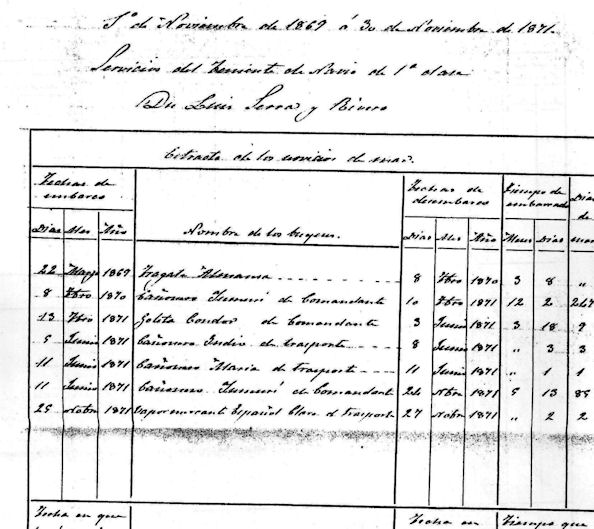 1º de Noviembre de 1869 á 30 de Noviembre de 1871.
Servicios del Teniente de Navio de 1ª clase
Dn Luis Serra y Rivero
Extracto de los servicios de mar.
Fechas de embarco Fechas de desembarco Tiempo de embarcado Dias de mar
Dias Mes Año Nombre de los buques. Dias Mes Año Meses Dias
22 1869 Fragata Almansa 8 Fbro 1870 3 8 "
8 Fbro 1870 Cañonero Yumurí de Comandante 10 Fbro 1871 12 2
13 Fbro 1871 Goleta Condor de Comandante 3 Junio 1871 3 18 9
5 Junio 1871 Cañonero Indio de trasporte 8 Junio 1871 " 3 3
11 Junio 1871 Cañonero Maria de trasporte 11 Junio 1871 " 1 1
11 Junio 1871 Cañonero Yumurí de Comandante 24 Nbre 1871 5 13 85
25 Nobre 1871 Vapor mercante Español Clara de trasporte 27 Nobre 1871 " 2 2
Fecha en que Fecha en Tiempo que